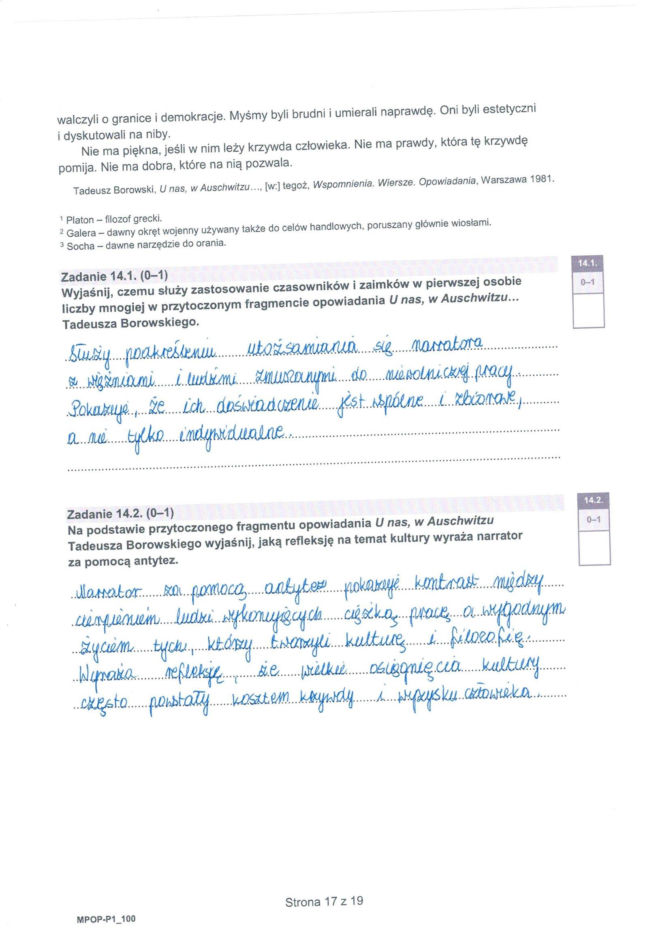 walczyli o granice i demokracje. Myśmy byli brudni i umierali naprawdę. Oni byli estetyczni
i dyskutowali na niby.
Nie ma piękna, jeśli w nim leży krzywda człowieka. Nie ma prawdy, która tę krzywdę
pomija. Nie ma dobra, które na nią pozwala.
Tadeusz Borowski, U nas, w Auschwitzu…, [w:] tegoż, Wspomnienia. Wiersze. Opowiadania, Warszawa 1981.
1 Platon – filozof grecki.
2 Galera – dawny okręt wojenny używany także do celów handlowych, poruszany głównie wiosłami.
3 Socha – dawne narzędzie do orania.
Zadanie 14.1. (0–1)
Wyjaśnij, czemu służy zastosowanie czasowników i zaimków w pierwszej osobie
liczby mnogiej w przytoczonym fragmencie opowiadania U nas, w Auschwitzu…
Tadeusza Borowskiego.
14.1.
0–1
Służy podkreśleniu utożsamiania się narratora
z więźniami i ludźmi zmuszanymi do niewolniczej pracy.
Pokazuje, że ich doświadczenie jest wspólne i zbiorowe,
a nie tylko indywidualne.
Zadanie 14.2. (0–1)
Na podstawie przytoczonego fragmentu opowiadania U nas, w Auschwitzu
Tadeusza Borowskiego wyjaśnij, jaką refleksję na temat kultury wyraża narrator
za pomocą antytez.
14.2.
0–1
Narrator za pomocą antytez pokazuje kontrast między
cierpieniem ludzi wykonujących ciężką pracę a wygodnym
życiem tych, którzy tworzyli kulturę i filozofię.
Wyraża refleksję, że wielkie osiągnięcia kultury
często powstały kosztem krzywdy i wyzysku człowieka.
Strona 17 z 19
MPOP-P1_100